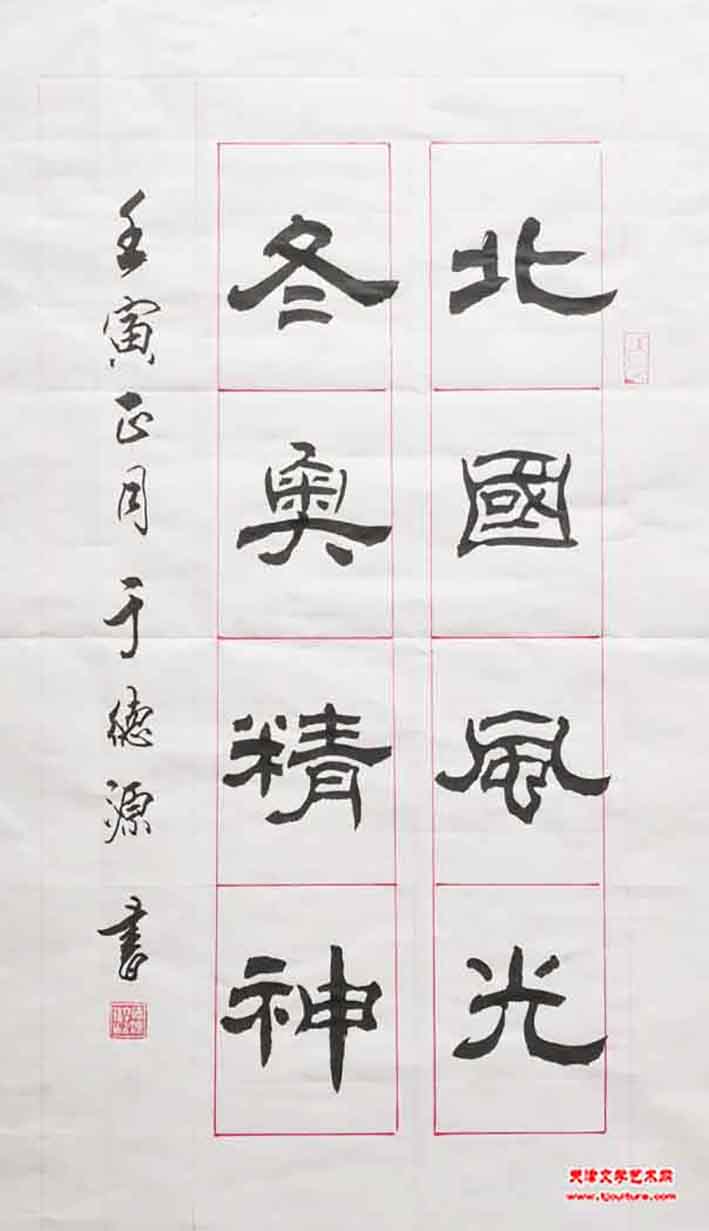 北國風光
冬奥精神
壬寅正月于德源書
天津文学艺术网
www.tjculture.com